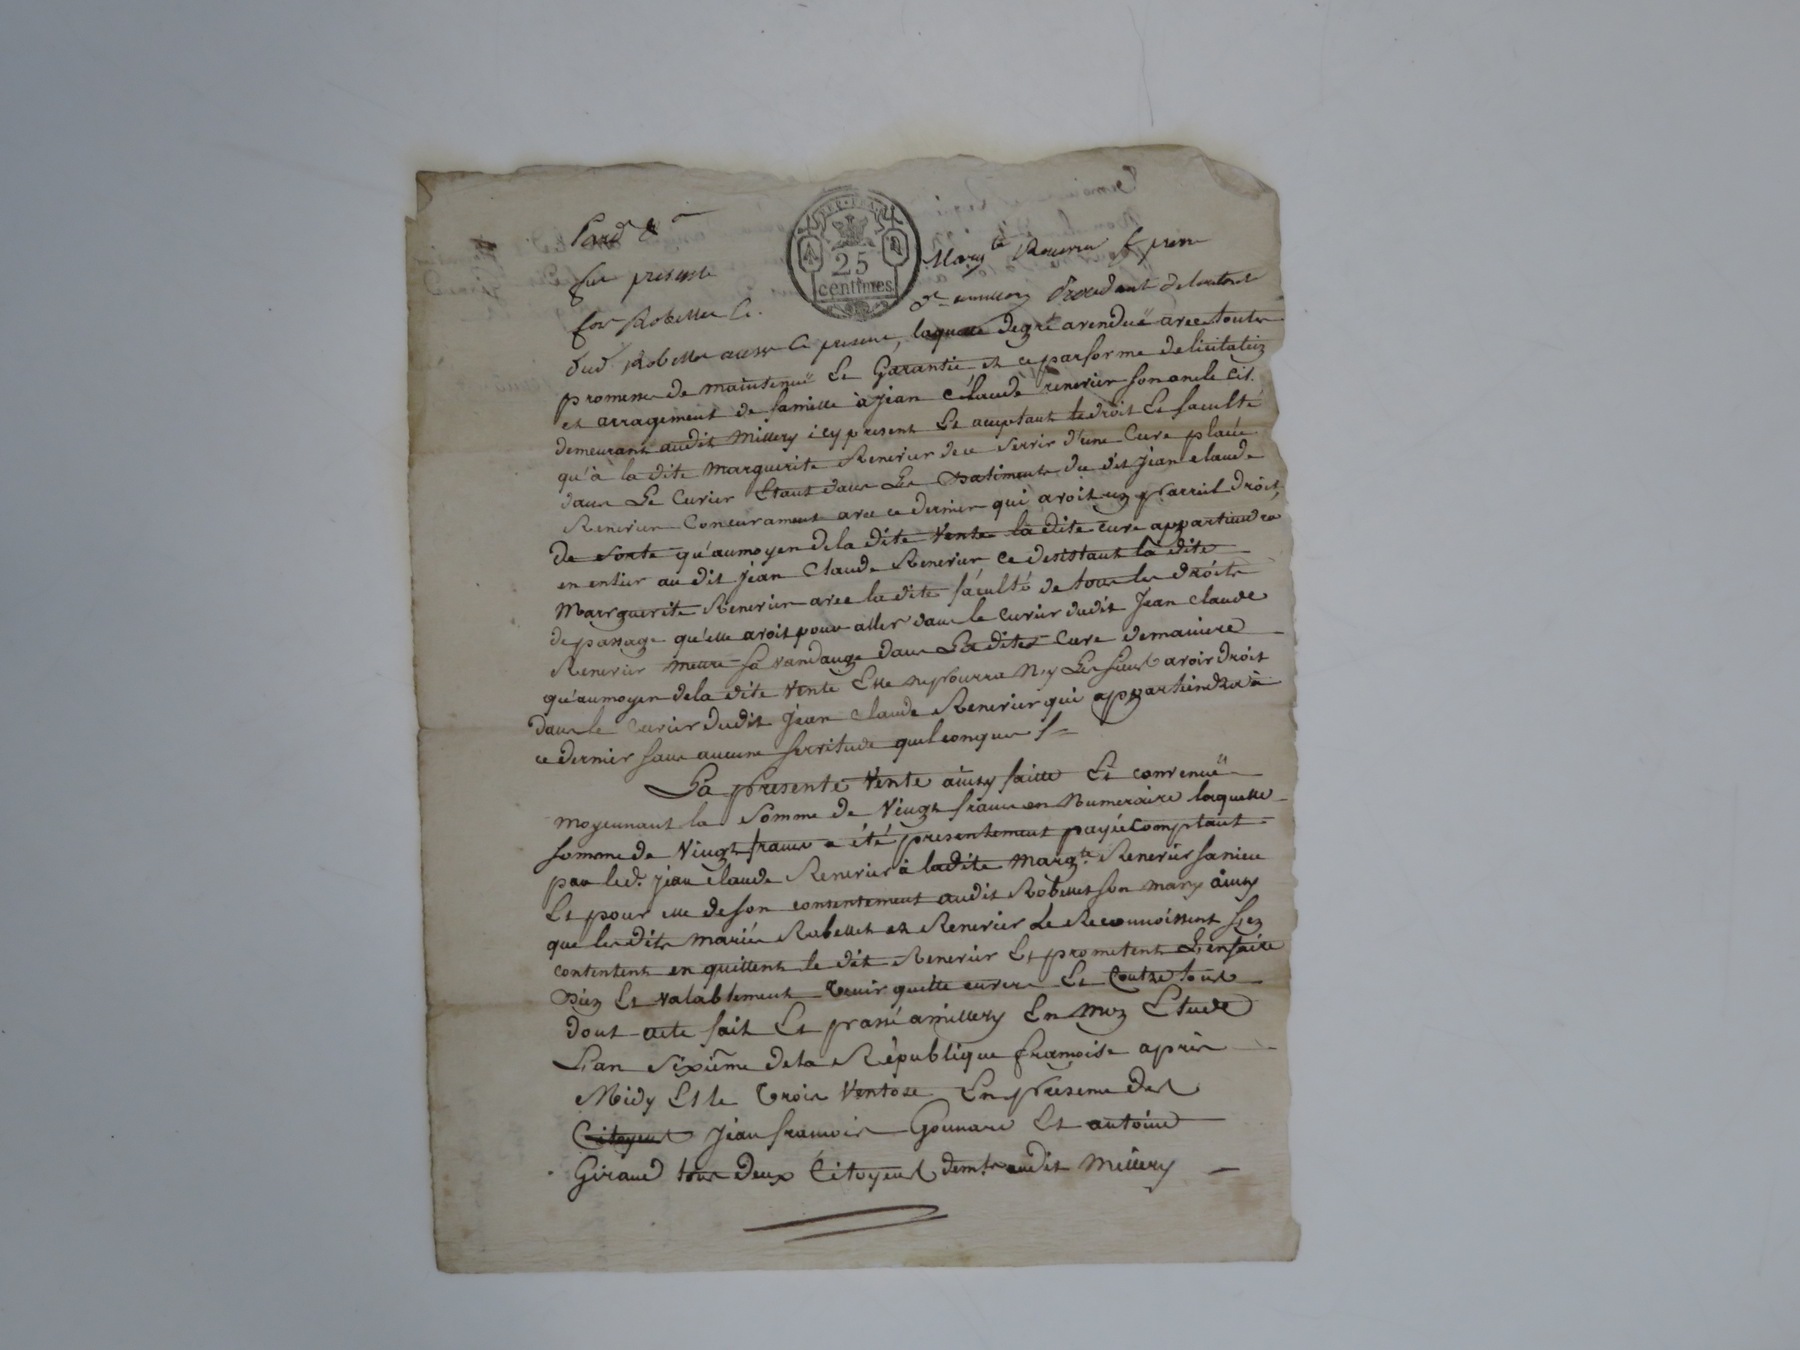 Pard.
RÉP. FRA.
25
centimes
fut presente Marg.te Renevier f
de Robellet
dud. Robellet aussi ce present, laquelle degré avendüe avec toute
promesse de maintenüe Et Garantie et ce par forme de licitation
et arragement de famille à Jean Claude renevier son oncle cit.
demeurant audit Millery icy present Et acceptant le droit Et faculté
qu'à la dite Marguerite Renevier de se servir d'une Cuve placée
dans Le Cuvier Etant dans Les Batiments du dit Jean claude
Renevier Concurament avec ce dernier qui avoit un pareil Droit,
de sorte qu'au moyen de la dite Vente la dite cuve appartiendra
en entier au dit Jean Claude Renevier ce desistant la dite
Marguerite Renevier avec la dite faculté de tous les droits
de passage qu'elle avoit pour aller dans le Cuvier dudit Jean Claude
Renevier mettre sa vandange dans La dite Cuve de maniere
qu'au moyen de la dite Vente Elle ne pourra Ny Les siens avoir Droit
dans le Cuvier dudit Jean Claude Renevier qui appartiendra à
ce dernier sans aucune servitude quelconque
La presente Vente ainsy faitte Et convenuë
moyennant la somme de Vingt francs en Numeraire laquelle
somme de Vingt francs a été presentement payée comptant
par led. Jean Claude Renevier à la dite Marg.te Renevier sa niece
Et pour elle de son consentement audit Robellet son mary ainsy
que lesdits mariés Robellet et Renevier Le Reconnoissent s'en
contentent en quittent le dit Renevier Et promettent L'en faire
Bien Et valablement tenir quitte envers Et Contre tous
dont acte fait Et passé a millery En mon Etude
L'an Sixième de la République françoise après
Midy Et le trois Ventose En presence des
Citoyens Jean francois Gounard Et antoine
Giraud tous deux Citoyens demts audit Millery